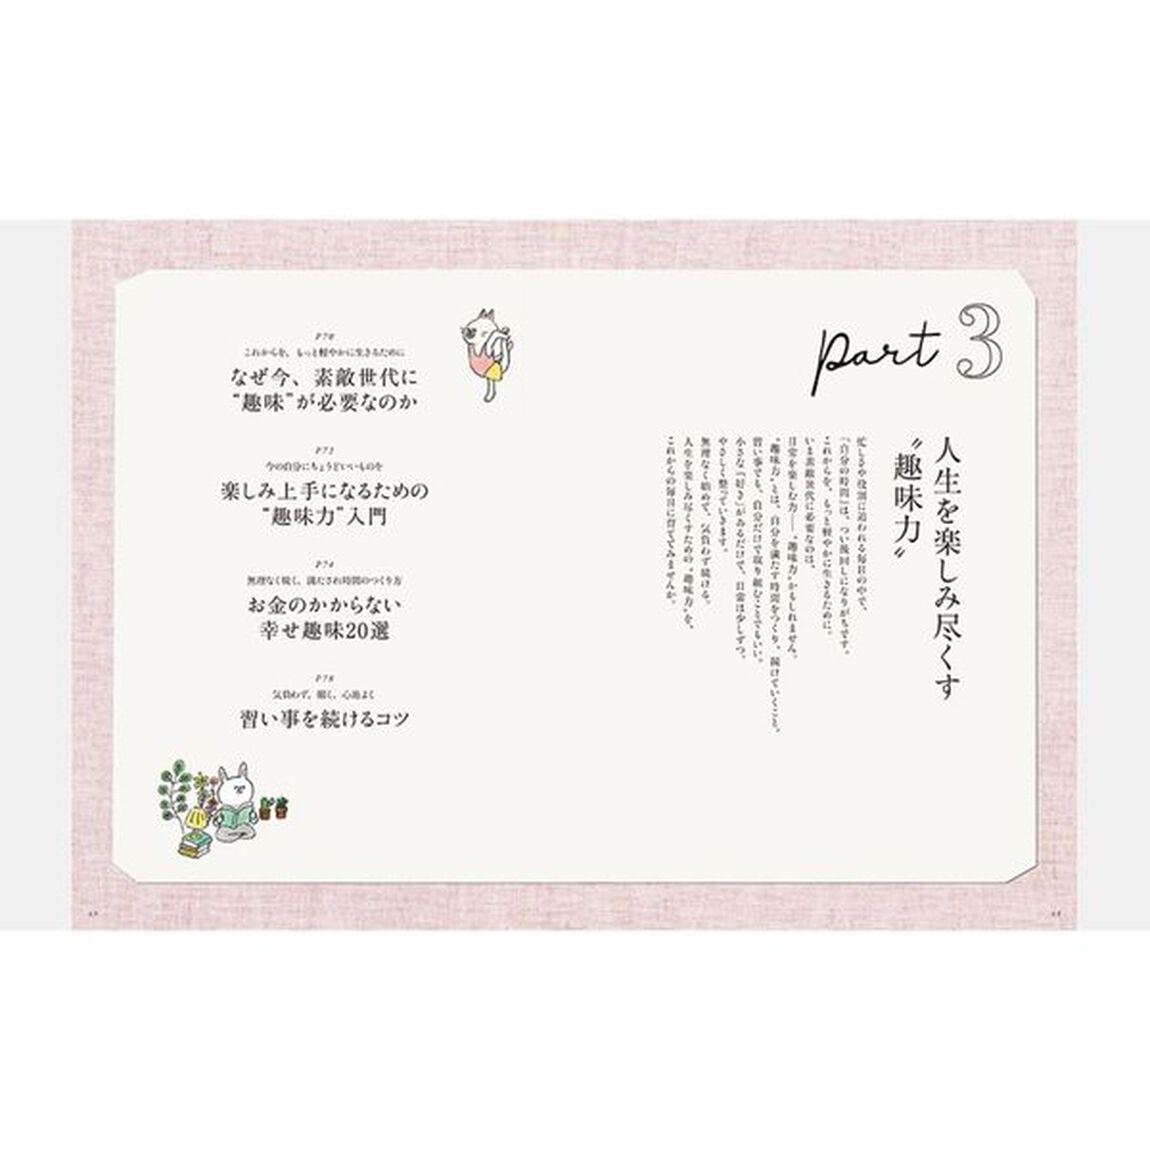 part 3
人生を楽しみ尽くす
“趣味力”
忙しさや役割に追われる毎日の中で、
「自分の時間」は、つい後回しになりがちです。
これからを、もっと軽やかに生きるために。
いま素敵世代に必要なのは、
日常を楽しむ力——“趣味力”かもしれません。
“趣味力”とは、自分を満たす時間をつくり、続けていくこと。
習い事でも、自分だけで取り組むことでもいい。
小さな「好き」があるだけで、日常は少しずつ、
やさしく整っていきます。
無理なく始めて、気負わず続ける。
人生を楽しみ尽くすための“趣味力”を、
これからの毎日に育ててみませんか。
P70
これからを、もっと軽やかに生きるために
なぜ今、素敵世代に
“趣味”が必要なのか
P72
今の自分にちょうどいいものを
楽しみ上手になるための
“趣味力”入門
P74
無理なく続く、満たされ時間のつくり方
お金のかからない
幸せ趣味20選
P78
気負わず、細く、心地よく
習い事を続けるコツ